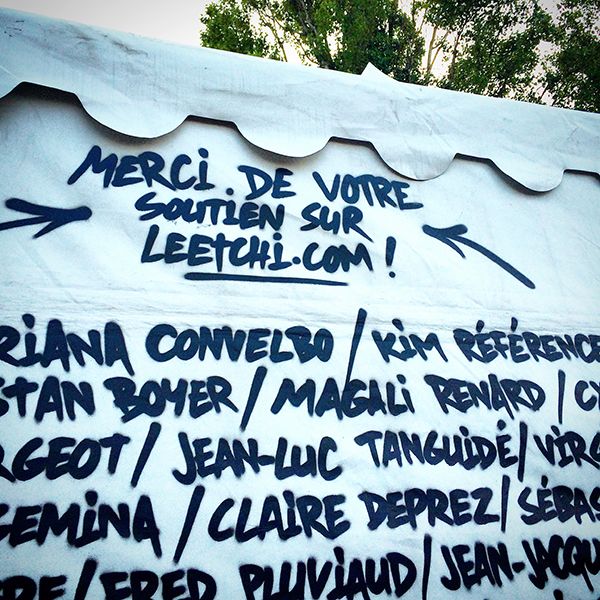 MERCI DE VOTRE
SOUTIEN SUR
LEETCHI.COM !
RIANA CONVELBO / KIM RÉFÉRENCE
STAN BOYER / MAGALI RENARD / CY
RGEOT / JEAN-LUC TANGUIDÉ / VIRG
GEMINA / CLAIRE DEPREZ / SÉBAS
ERE / FRED PLUVIAUD / JEAN-JACQU